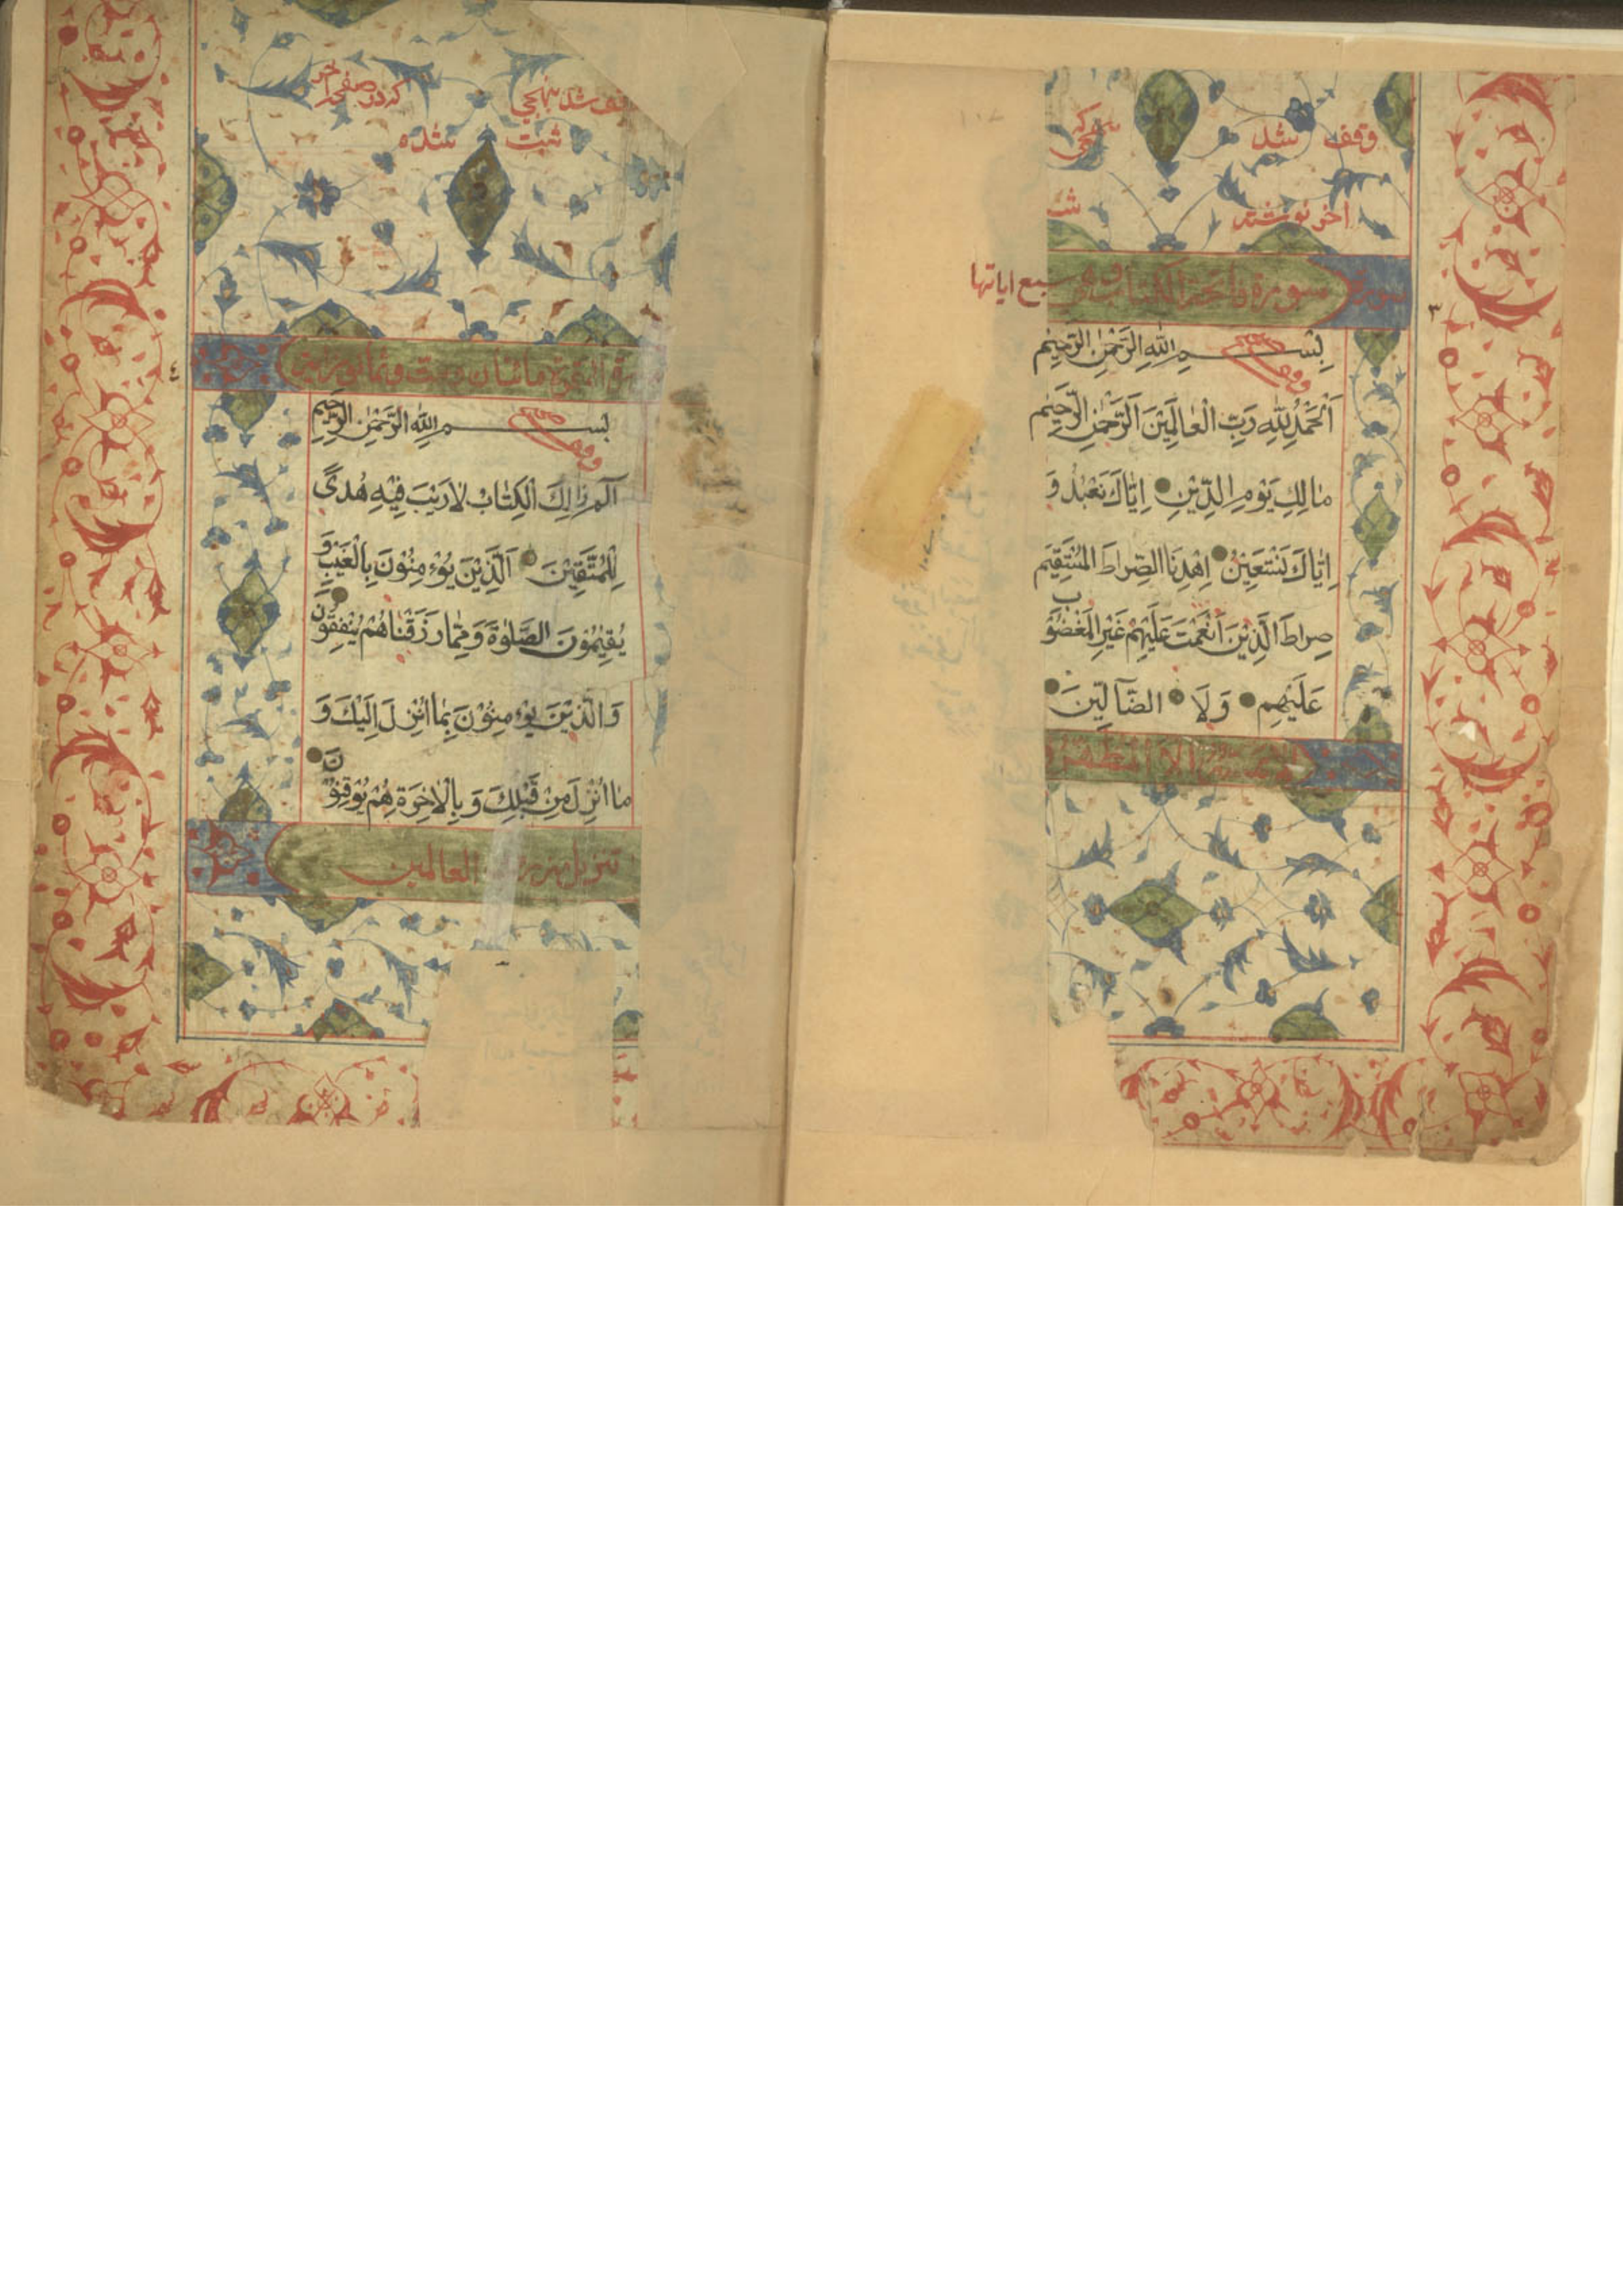 وقف شد
اخر نوشته
سورة فاتحة الكتاب وهي سبع اياتها
بِسْمِ اللهِ الرَّحْمٰنِ الرَّحِيْمِ
اَلْحَمْدُ لِلّٰهِ رَبِّ الْعٰالَمِيْنَ اَلرَّحْمٰنِ الرَّحِيْمِ
مٰالِكِ يَوْمِ الدِّيْنِ اِيّٰاكَ نَعْبُدُ وَ
اِيّٰاكَ نَسْتَعِيْنُ اِهْدِنَا الصِّرٰاطَ الْمُسْتَقِيْمَ
صِرٰاطَ الَّذِيْنَ اَنْعَمْتَ عَلَيْهِمْ غَيْرِ الْمَغْضُوْبِ
عَلَيْهِمْ وَلَا الضّٰآلِّيْنَ
لا يمسه الا المطهرون
٣
شد
كه در صفحه اخر
ثبت شده
البقرة مائتان وست وثمانون اية
بِسْمِ اللهِ الرَّحْمٰنِ الرَّحِيْمِ
الٓمٓ ذٰلِكَ الْكِتٰابُ لٰا رَيْبَ فِيْهِ هُدىً
لِلْمُتَّقِيْنَ اَلَّذِيْنَ يُؤْمِنُوْنَ بِالْغَيْبِ وَ
يُقِيْمُوْنَ الصَّلٰوةَ وَمِمّٰا رَزَقْنٰاهُمْ يُنْفِقُوْنَ
وَالَّذِيْنَ يُؤْمِنُوْنَ بِمٰا اُنْزِلَ اِلَيْكَ وَ
مٰا اُنْزِلَ مِنْ قَبْلِكَ وَبِالْاٰخِرَةِ هُمْ يُوْقِنُوْنَ
تنزيل من رب العالمين
٤